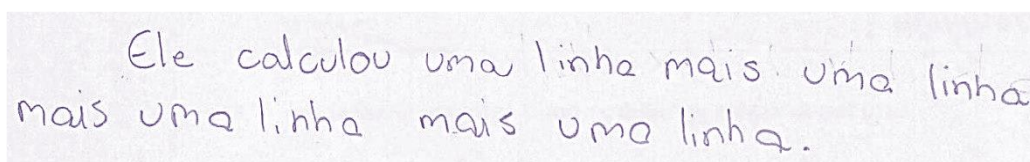 Ele calculou uma linha mais uma linha
mais uma linha mais uma linha.